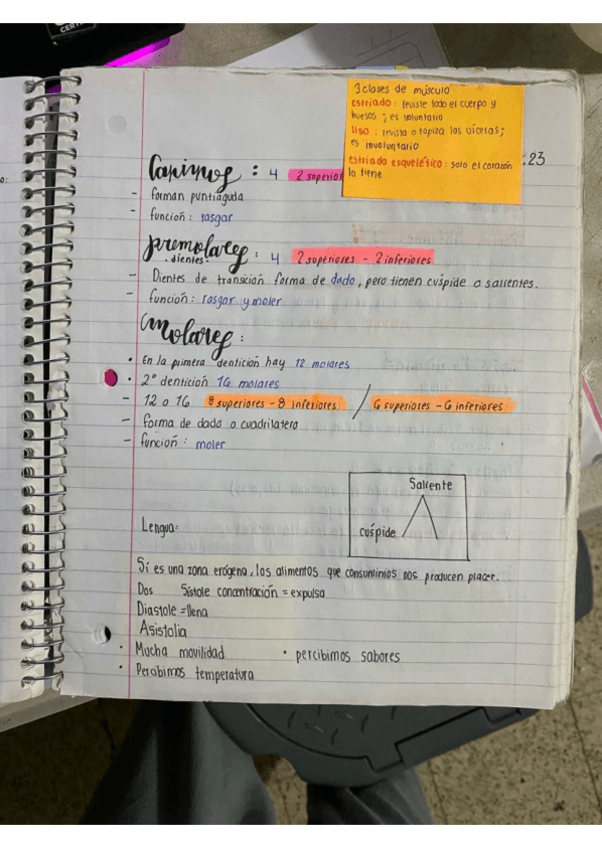 3 clases de músculo
estriado: reviste todo el cuerpo y
huesos; es voluntario
liso: revista o tapiza las víceras;
es involuntario
estriado esquelético: solo el corazón
lo tiene
:23
Caninos: 4 2 superior
- forman puntiaguda
- función: rasgar
premolares: 4 2 superiores - 2 inferiores
· dientes·
- Dientes de transición forma de dado, pero tienen cúspide o salientes.
- función: rasgar y moler
Molares:
• En la primera dentición hay 12 molares
• 2° dentición 16 molares
- 12 o 16 8 superiores - 8 inferiores / 6 superiores - 6 inferiores
- forma de dado o cuadrilatero
- función: moler
Saliente
cúspide
Lengua:
Sí es una zona erógena, los alimentos que consumimos nos producen placer.
Dos Sístole concentración = expulsa
Diastole = llena
Asistolia
• Mucha movilidad • percibimos sabores
• Percibimos temperatura